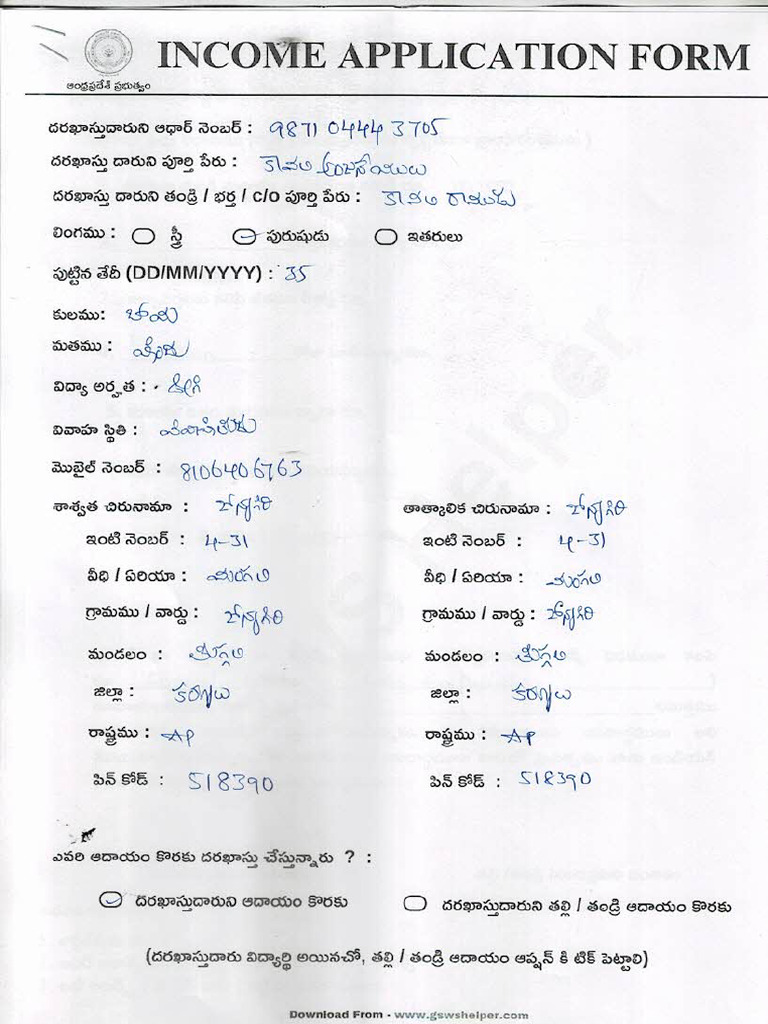 INCOME APPLICATION FORM
ఆంధ్రప్రదేశ్ ప్రభుత్వం
దరఖాస్తుదారుని ఆధార్ నెంబర్ : 9871 0444 3705
దరఖాస్తు దారుని పూర్తి పేరు : కావలి ఆంజనేయులు
దరఖాస్తు దారుని తండ్రి / భర్త / c/o పూర్తి పేరు : కావలి రాముడు
లింగము : స్త్రీ పురుషుడు ఇతరులు
పుట్టిన తేదీ (DD/MM/YYYY) : 35
కులము: బోయ
మతము :
విద్యా అర్హత : డిగ్రి
వివాహ స్థితి :
మొబైల్ నెంబర్ : 8106406763
శాశ్వత చిరునామా : తాత్కాలిక చిరునామా :
ఇంటి నెంబర్ : 4-31 ఇంటి నెంబర్ : 4-31
వీధి / ఏరియా : వీధి / ఏరియా :
గ్రామము / వార్డు : గ్రామము / వార్డు :
మండలం : తుగ్గలి మండలం : తుగ్గలి
జిల్లా : కర్నూలు జిల్లా : కర్నూలు
రాష్ట్రము : AP రాష్ట్రము : AP
పిన్ కోడ్ : 518390 పిన్ కోడ్ : 518390
ఎవరి ఆదాయం కొరకు దరఖాస్తు చేస్తున్నారు ? :
దరఖాస్తుదారుని ఆదాయం కొరకు దరఖాస్తుదారుని తల్లి / తండ్రి ఆదాయం కొరకు
(దరఖాస్తుదారు విద్యార్థి అయినచో, తల్లి / తండ్రి ఆదాయం ఆప్షన్ కి టిక్ పెట్టాలి)
Download From - www.gswshelper.com